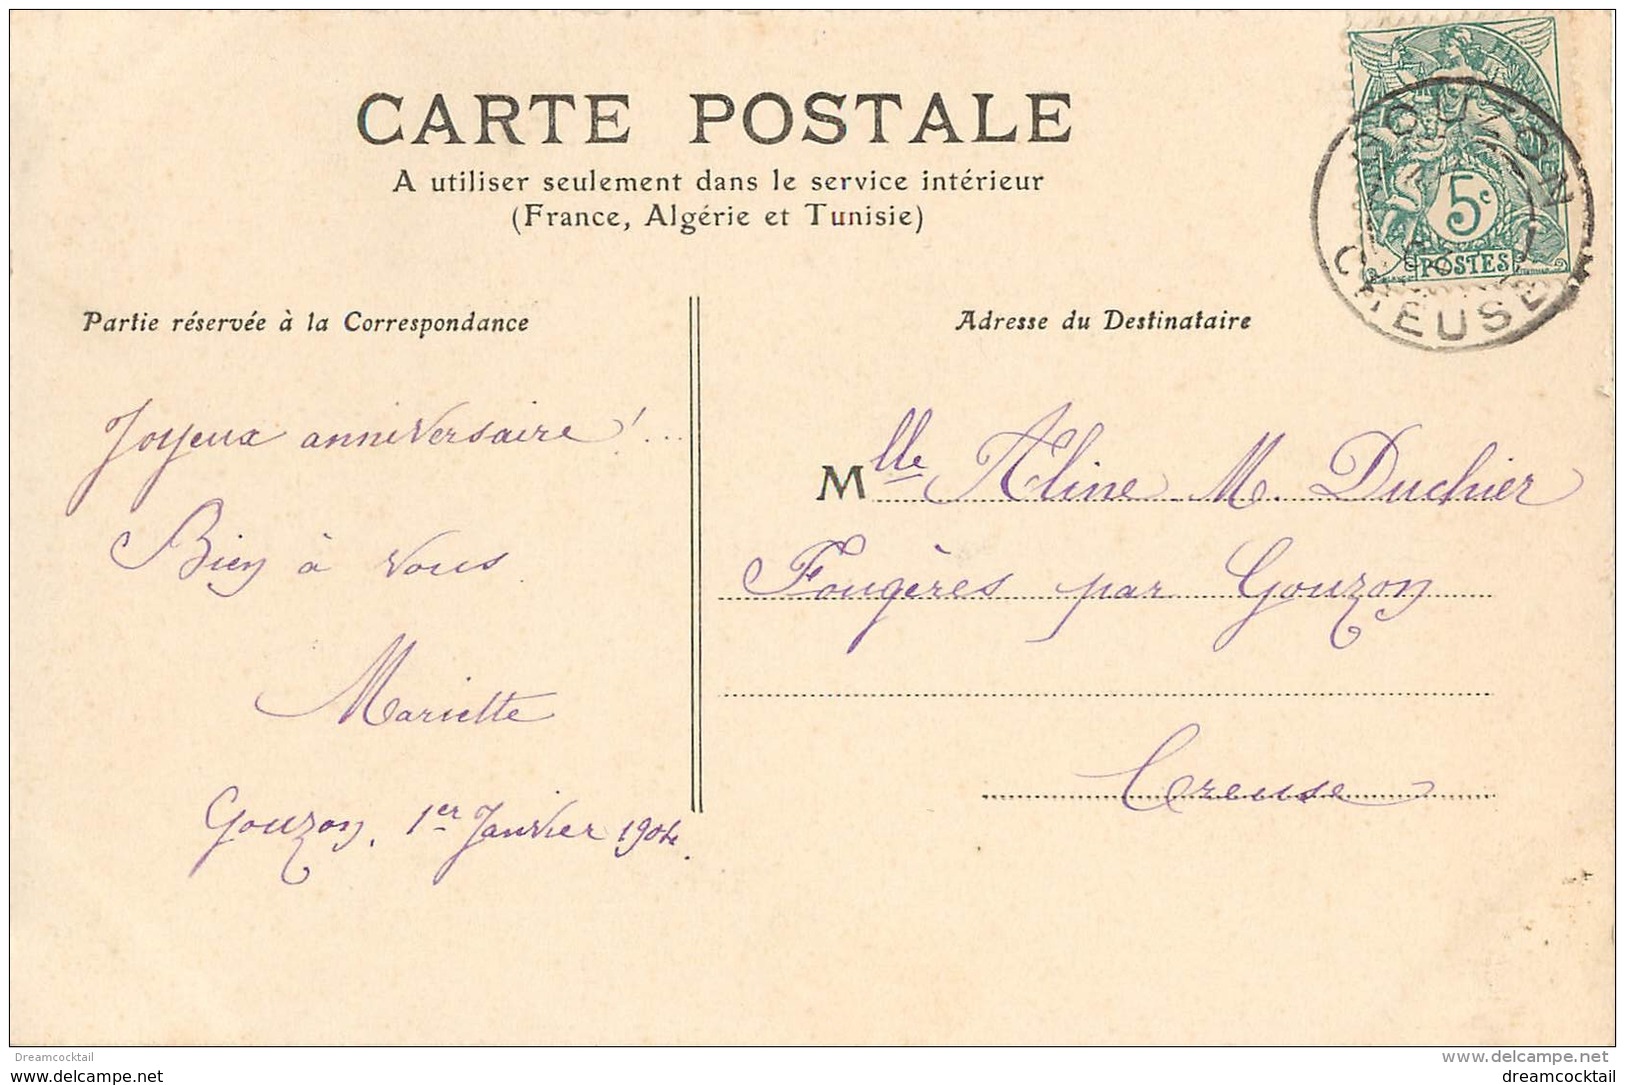 CARTE POSTALE
A utiliser seulement dans le service intérieur
(France, Algérie et Tunisie)
5c
POSTES
GOUZON
CREUSE
Partie réservée à la Correspondance
Joyeux anniversaire !...
Bien à vous
Mariette
Gouzon, 1er Janvier 1904.
Adresse du Destinataire
Mlle Aline M. Duchier
Fougères par Gouzon
Creuse
Dreamcocktail
dreamcocktail
www.delcampe.net
dreamcocktail